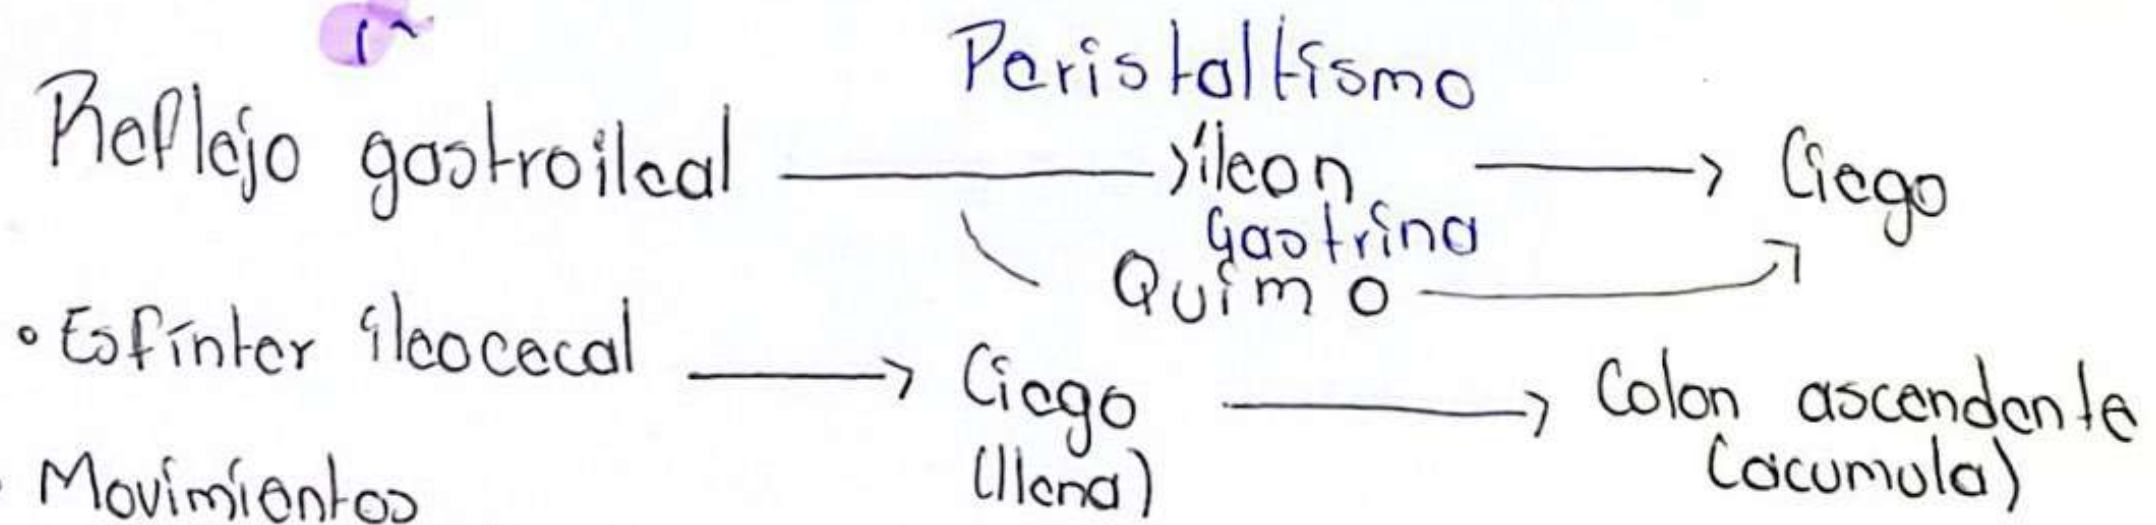 Peristaltismo
Reflejo gastroileal → íleon → Ciego
Gastrina
Quimo
• Esfínter ileocecal → Ciego → Colon ascendente
(llena) (acumula)
• Movimientos